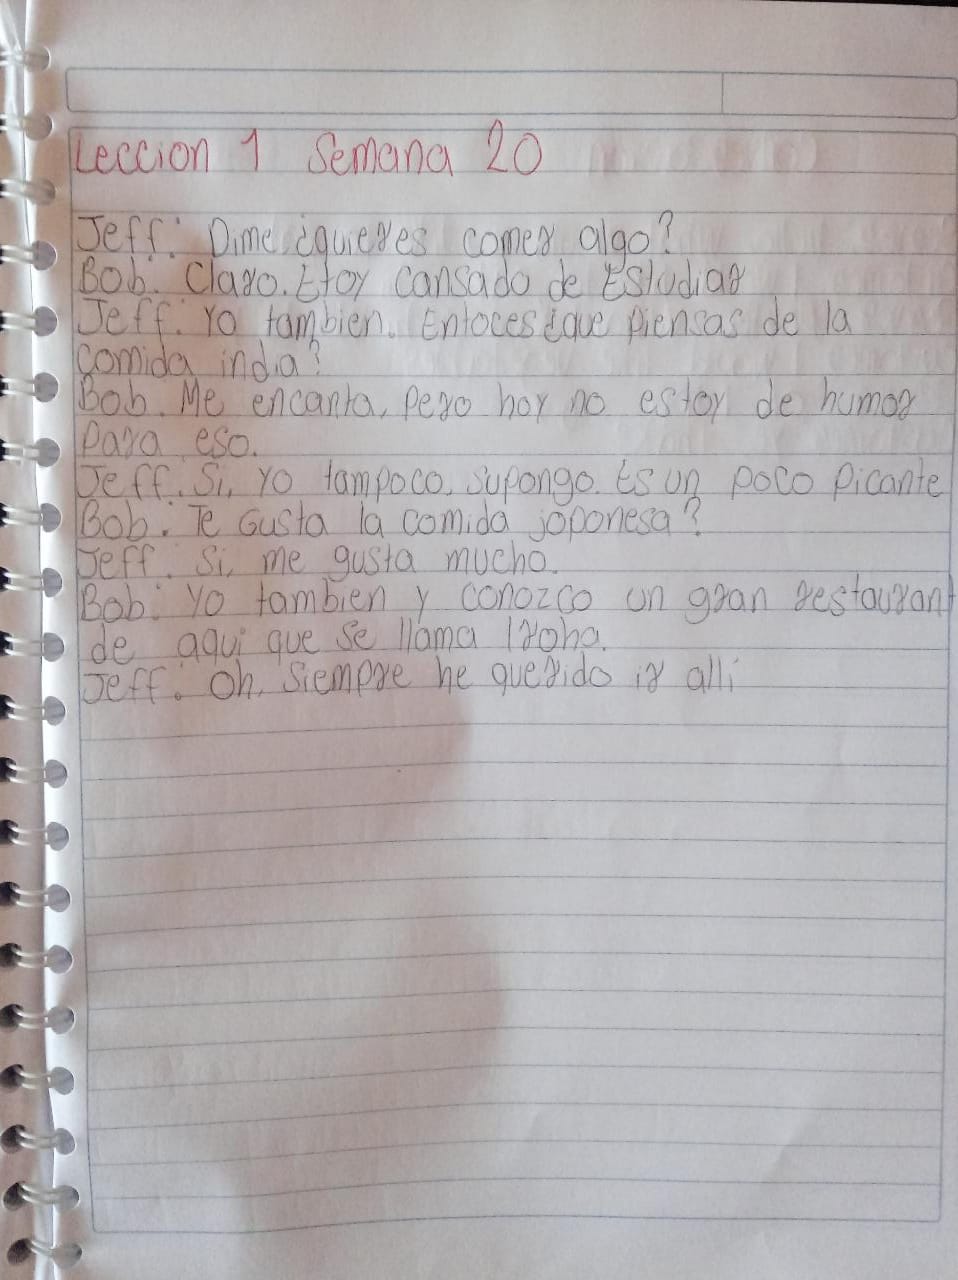 Leccion 1 Semana 20
Jeff: Dime ¿quieres comer algo?
Bob: Claro. Etoy cansado de Estudiar
Jeff: Yo tambien. Entoces ¿que piensas de la
comida india?
Bob. Me encanta, pero hoy no estoy de humor
Para eso.
Jeff. Si, yo tampoco, supongo. Es un poco Picante
Bob: Te Gusta la comida joponesa?
Jeff. Si, me gusta mucho.
Bob: yo tambien y conozco un gran restaurant
de aqui que se llama Iroha.
Jeff. Oh, Siempre he querido ir alli